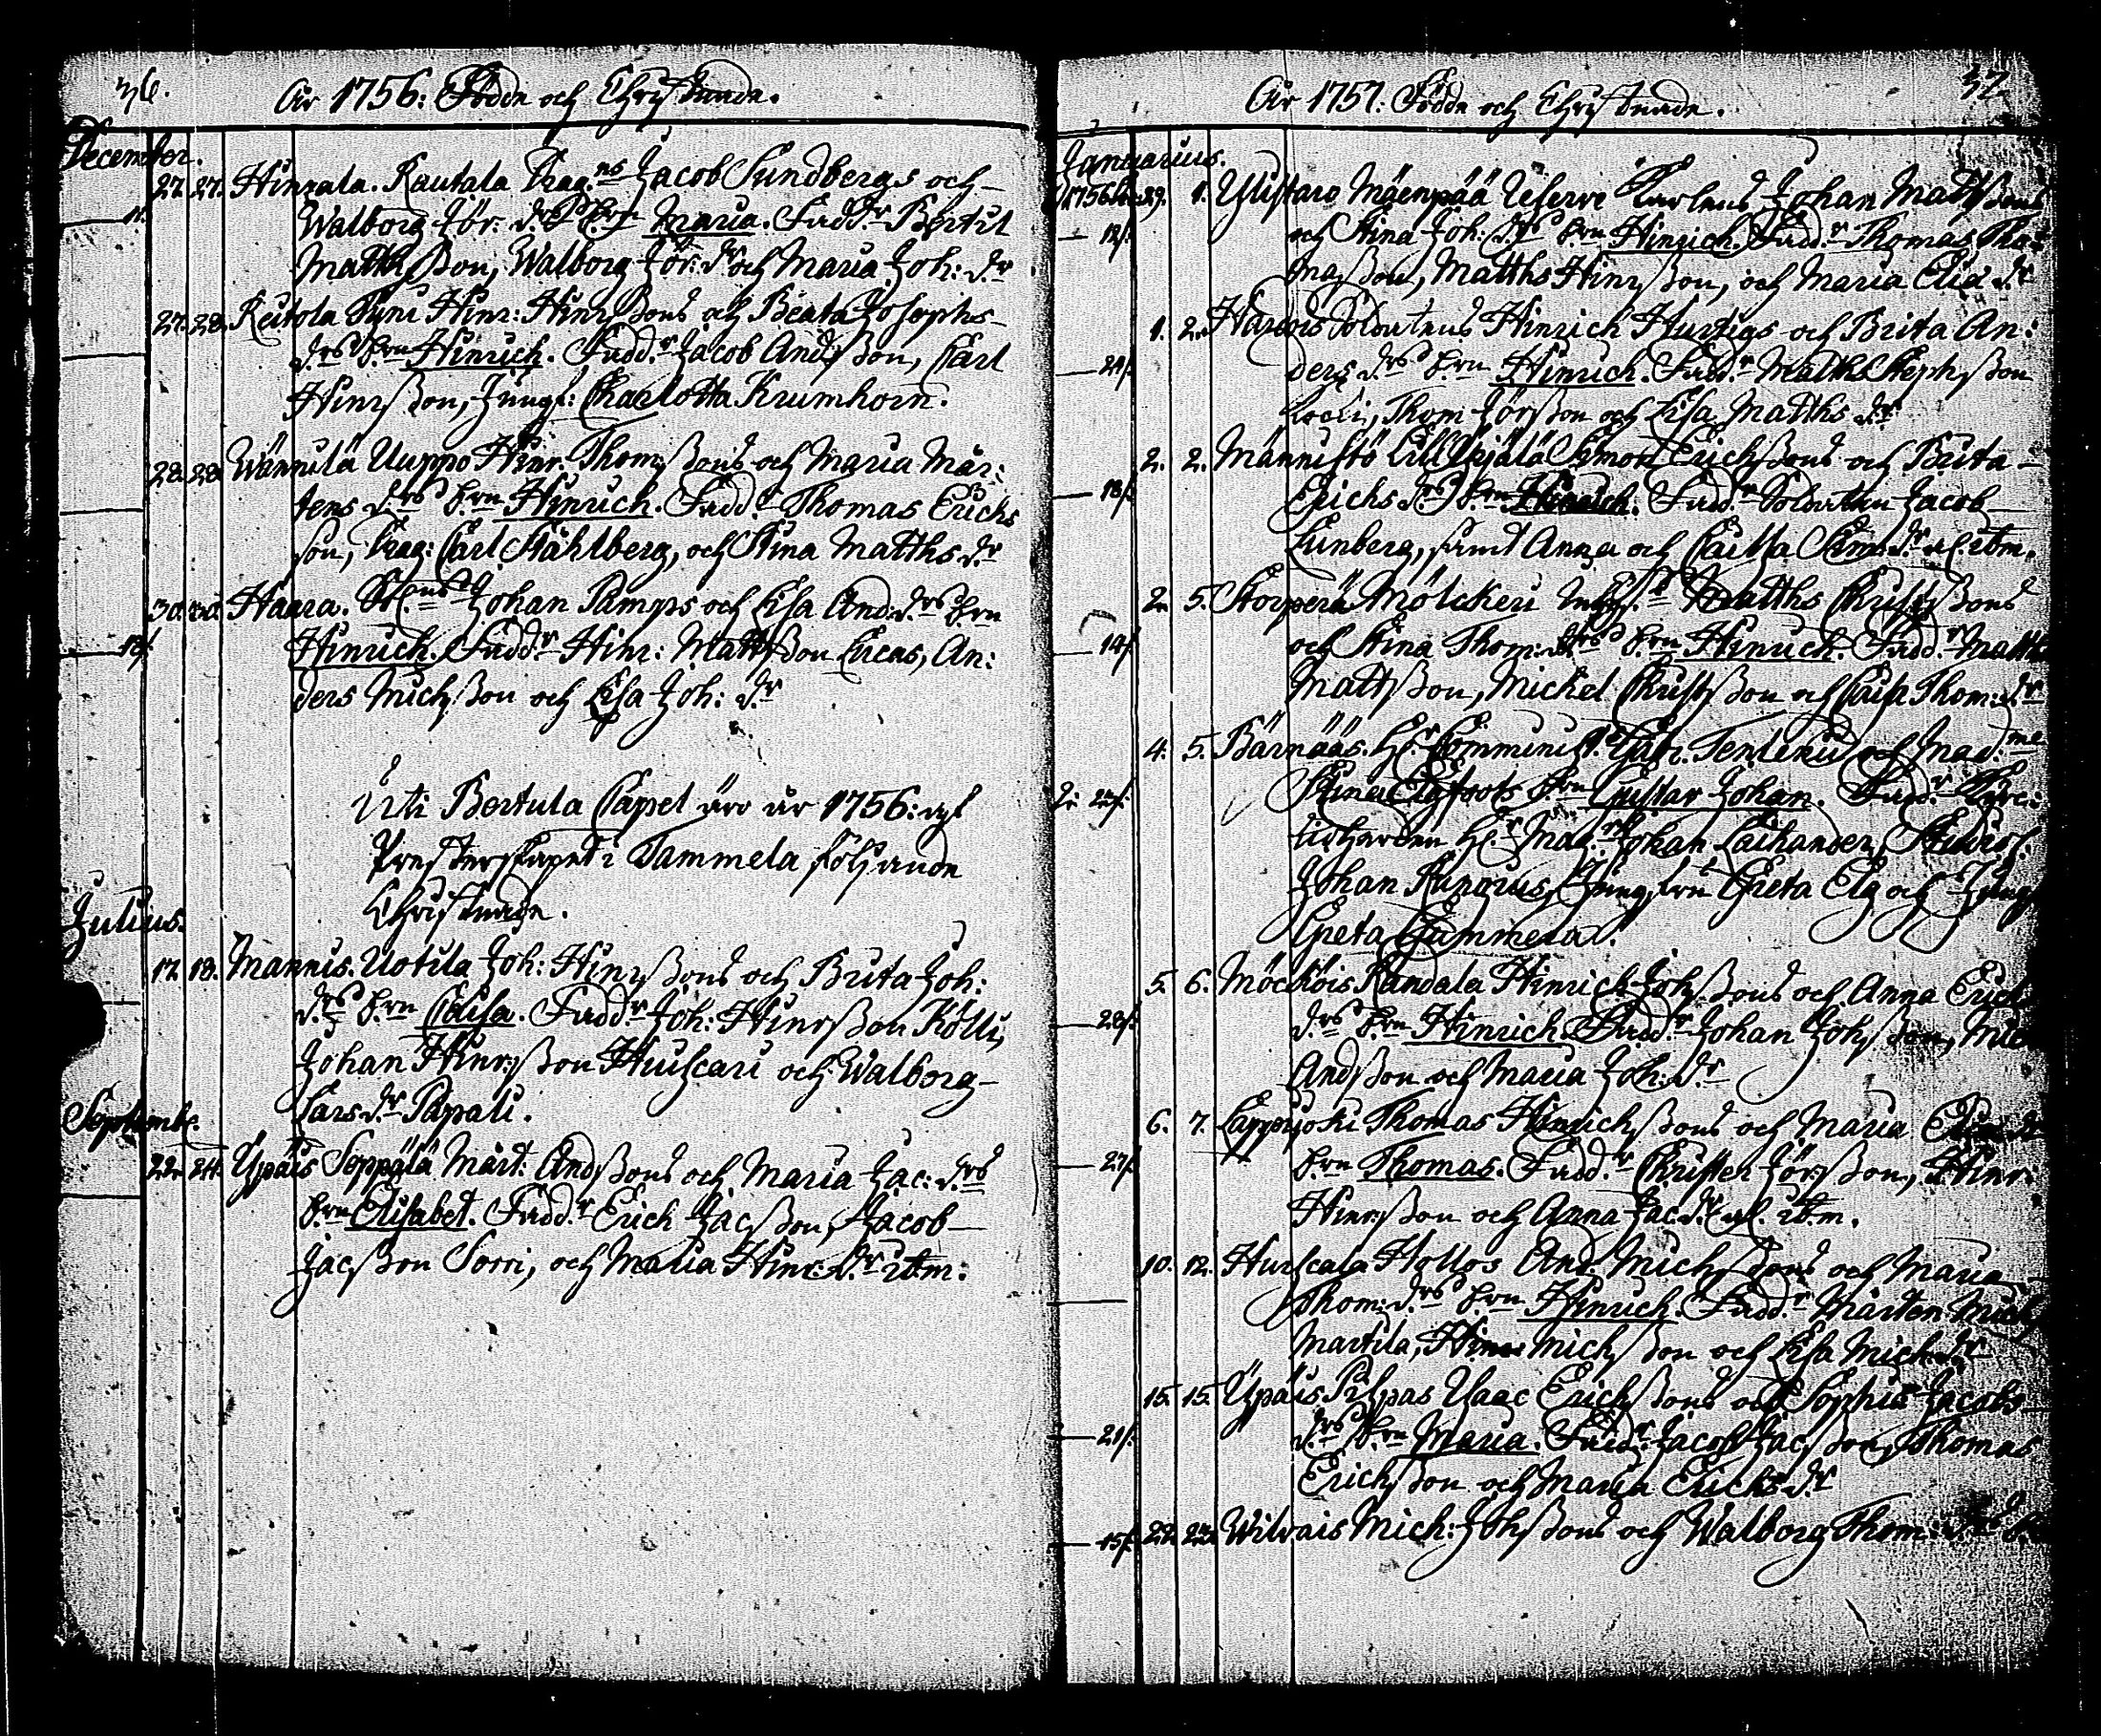 36.
År 1756: Födde och Christnade.
December.
27. 27. Hinrala. Rautala Drag:ns Jacob Sundbergs och
11. Walborg Jör: d:rs b:rn Maria. Fadd:r Bertil
Matthsson, Walborg Jör: d:r och Maria Joh: d:r
27. 28. Keitola Hinr: Hinrssons och Beata Josephs
d:rs b:rn Hinrich. Fadd:r Jacob Andsson, Carl
Hinrsson, Jungf: Charlotta Krumhorn.
28. 28. Wännilä Uuppo Hinr. Thomssons och Maria Mär:
tens d:rs b:rn Hinrich. Fadd:r Thomas Erichs
son, Drag: Carl Ståhlberg, och Stina Matths d:r
30. 30. Haara. Johan Pamps och Lisa And: d:rs b:rn
18/. Hinrich. Fadd:r Hinr: Mattsson Lucas, An:
ders Michsson och Lisa Joh: d:r
Uti Bertula Capel äro år 1756: af
Presterskapet i Tammela följande
Christnade.
Julius.
17. 18. Mannis. Uotila Joh: Hinrssons och Brita Joh:
d:rs b:rn Caisa. Fadd:r Joh: Hinrsson Kölli,
Johan Hinrsson Huhcari och Walborg
Lars d:r Papali.
Septemb:
22. 24. Ypäis Seppälä Märt: Andssons och Maria Jac: d:rs
b:rn Elisabet. Fadd:r Erich Jacsson, Jacob
Jacsson Sorri, och Maria Hinr: d:r
37
År 1757: Födde och Christnade.
Januarius.
1756 29. 1. Mäenpää Reserve Karlens Johan Mattssons
12/. och Stina Joh: d:rs b:rn Hinrich. Fadd:r Thomas Tho:
masson, Matths Hinrsson, och Maria Elia d:r
1. 2. Soldatens Hinrich Hurtigs och Brita An:
24/. ders d:rs b:rn Hinrich. Fadd:r Matths Stephsson
Thom Jörsson och Lisa Matths d:r
2. 2. Männistö Simon Erichssons och Brita
18/. Erichs d:rs b:rn Hinrich. Fadd:r Soldaten Jacob
Lunberg, samt Anna och Caisa Sim: d:r
2. 5. Torperä Mölckeri Matths Christssons
14/. och Stina Thom: d:rs b:rn Hinrich. Fadd:r Matts
Mattsson, Michel Christsson och Thom: d:r
4. 5. Pärnääs. H:r Communist: Gabr. Tenlenii och Mad:me
27/. Stina Elgfoots b:rn Gustav Johan. Fadd:r
H:r Mag:r Johan Laihander, Studios.
Johan Greta Elg och Jungf
Greta Gammera.
5. 6. Möckois Pandala Hinrich Johssons och Anna Erich
28/. d:rs b:rn Hinrich. Fadd:r Johan Johsson, Mich
Andsson och Maria Joh: d:r
6. 7. Lappijoki Thomas Hinrichssons och Maria
27/. b:rn Thomas. Fadd:r Christer Jörsson, Hinr:
Hinrsson och Anna Jac: d:r
10. 12. Huhcala Hollos And: Michssons och Maria
Thom: d:rs b:rn Hinrich. Fadd:r Mårten Mich
Martila, Hinr: Michsson och Lisa Mich: d:r
15. 15. Ypäis Pilpas Isaac Erichssons och Sophia Jacobs
21/. d:rs b:rn Maria. Fadd:r Jacob Jacsson, Thomas
Erichsson och Maria Erichs d:r
15/. 22. 23. Wilvais Mich: Johssons och Walborg Thom: d:rs